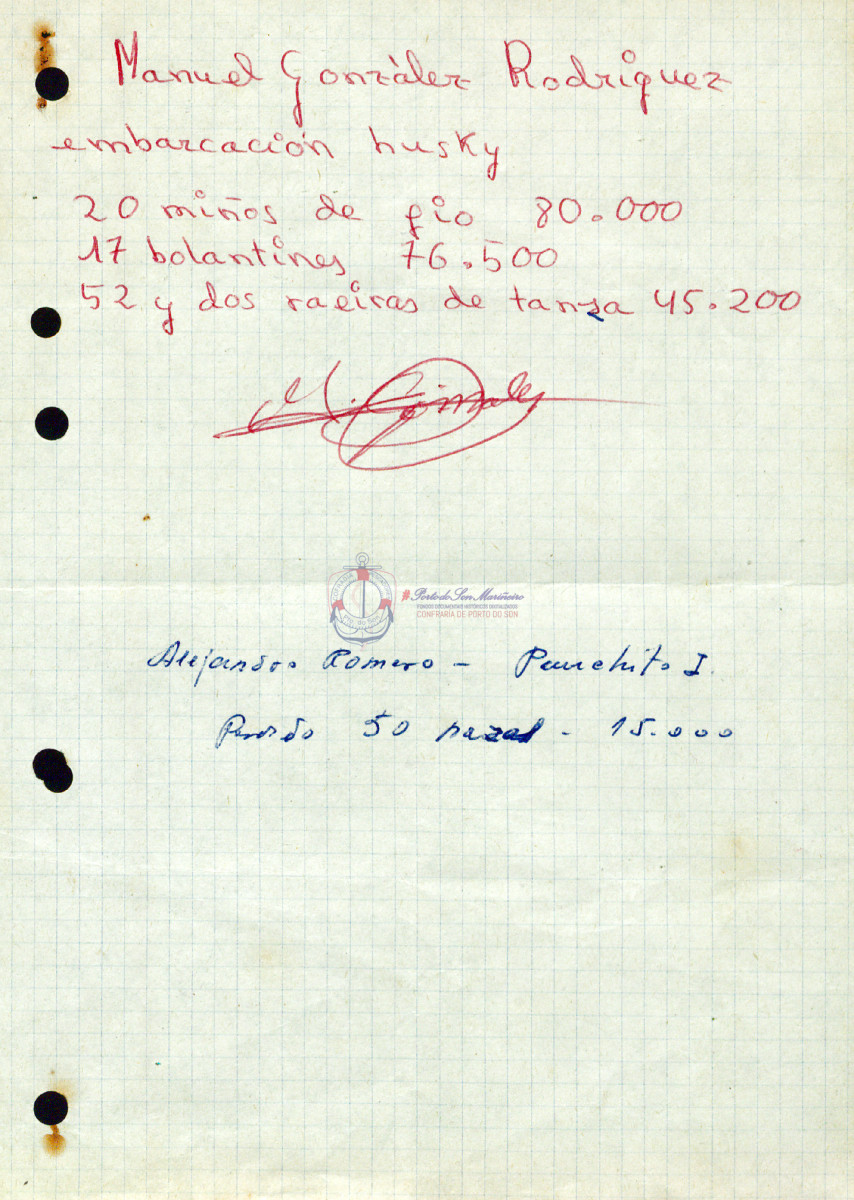 Manuel Gonzàlez Rodriguez
embarcación husky
20 miños de fio 80.000
17 bolantines 76.500
52 y dos raeiras de tanza 45.200
M. González
Porto do Son Mariñeiro
FONDOS DOCUMENTAIS HISTÓRICOS DIXITALIZADOS
CONFRARÍA DE PORTO DO SON
Alejandro Romero - Panchito I.
Perdido 50 nazas - 15.000